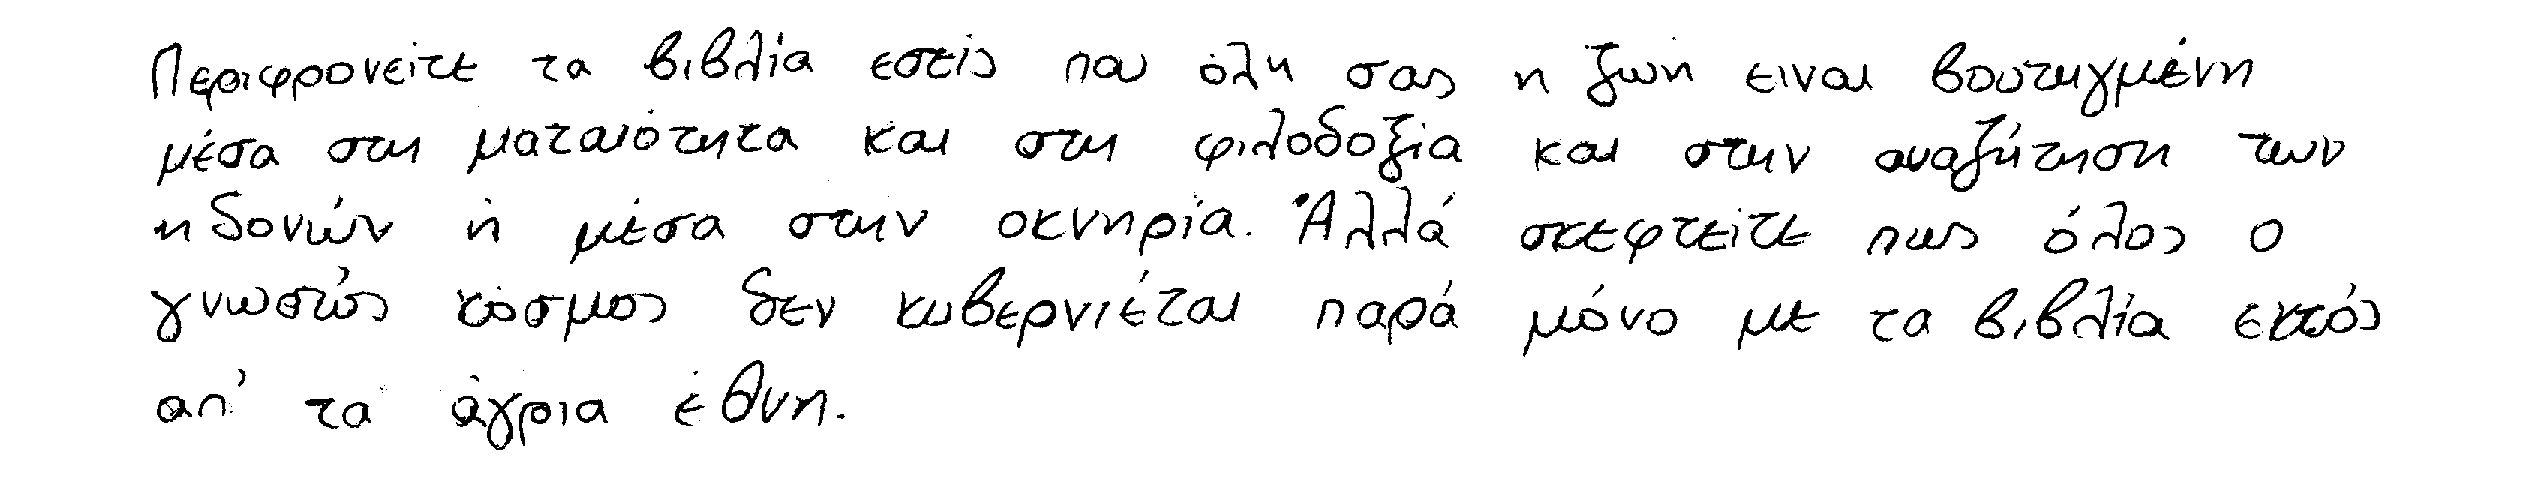 Περιφρονείτε τα βιβλία εσείς που όλη σας η ζωή ειναι βουτηγμένη
μέσα στη ματαιότητα και στη φιλοδοξία και στην αναζήτηση των
ηδονών ή μέσα στην οκνηρία. Άλλά σκεφτείτε πως όλος ο
γνωστός κόσμος δεν κυβερνιέται παρά μόνο με τα βιβλία εκτός
απ' τα άγρια έθνη.